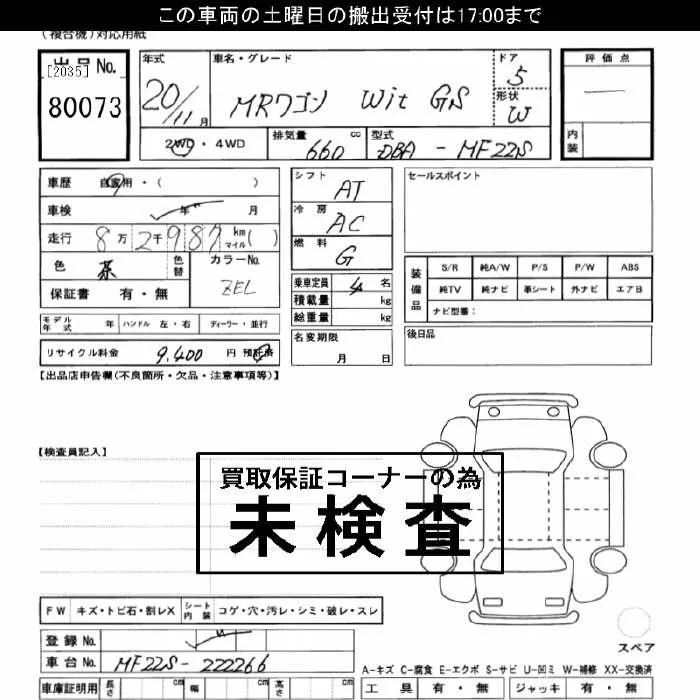 この車両の土曜日の搬出受付は17:00まで
(複合機)対応用紙
出品No.
[2035]
80073
年式
20/11月
車名・グレード
MRワゴン Wit GS
ドア
5
形状
W
評価点
—
内装
2WD・4WD
排気量 cc
660
型式
DBA - MF22S
車歴 自家用・( )
車検 年 月
走行 8万2千987 km マイル( )
色 茶 色替
カラーNo.
ZEL
保証書 有・無
シフト
AT
冷房
AC
燃料
G
乗車定員 4 名
積載量 kg
総重量 kg
セールスポイント
装備品
S/R 純A/W P/S P/W ABS
純TV 純ナビ 革シート 外ナビ エアB
ナビ型番:
モデル年式 年 ハンドル 左・右 ディーラー・並行
名変期限
月 日
後日品
リサイクル料金 9,400 円 預託済
【出品店申告欄(不良箇所・欠品・注意事項等)】
【検査員記入】
買取保証コーナーの為
未検査
FW キズ・トビ石・割レX シート内装 コゲ・穴・汚レ・シミ・破レ・スレ
登録No.
車台No. MF22S-222266
スペア
A-キズ C-腐食 E-エクボ S-サビ U-凹ミ W-補修 XX-交換済
車庫証明用 長さ cm 幅 cm 高さ cm
工具 有・無 ジャッキ 有・無